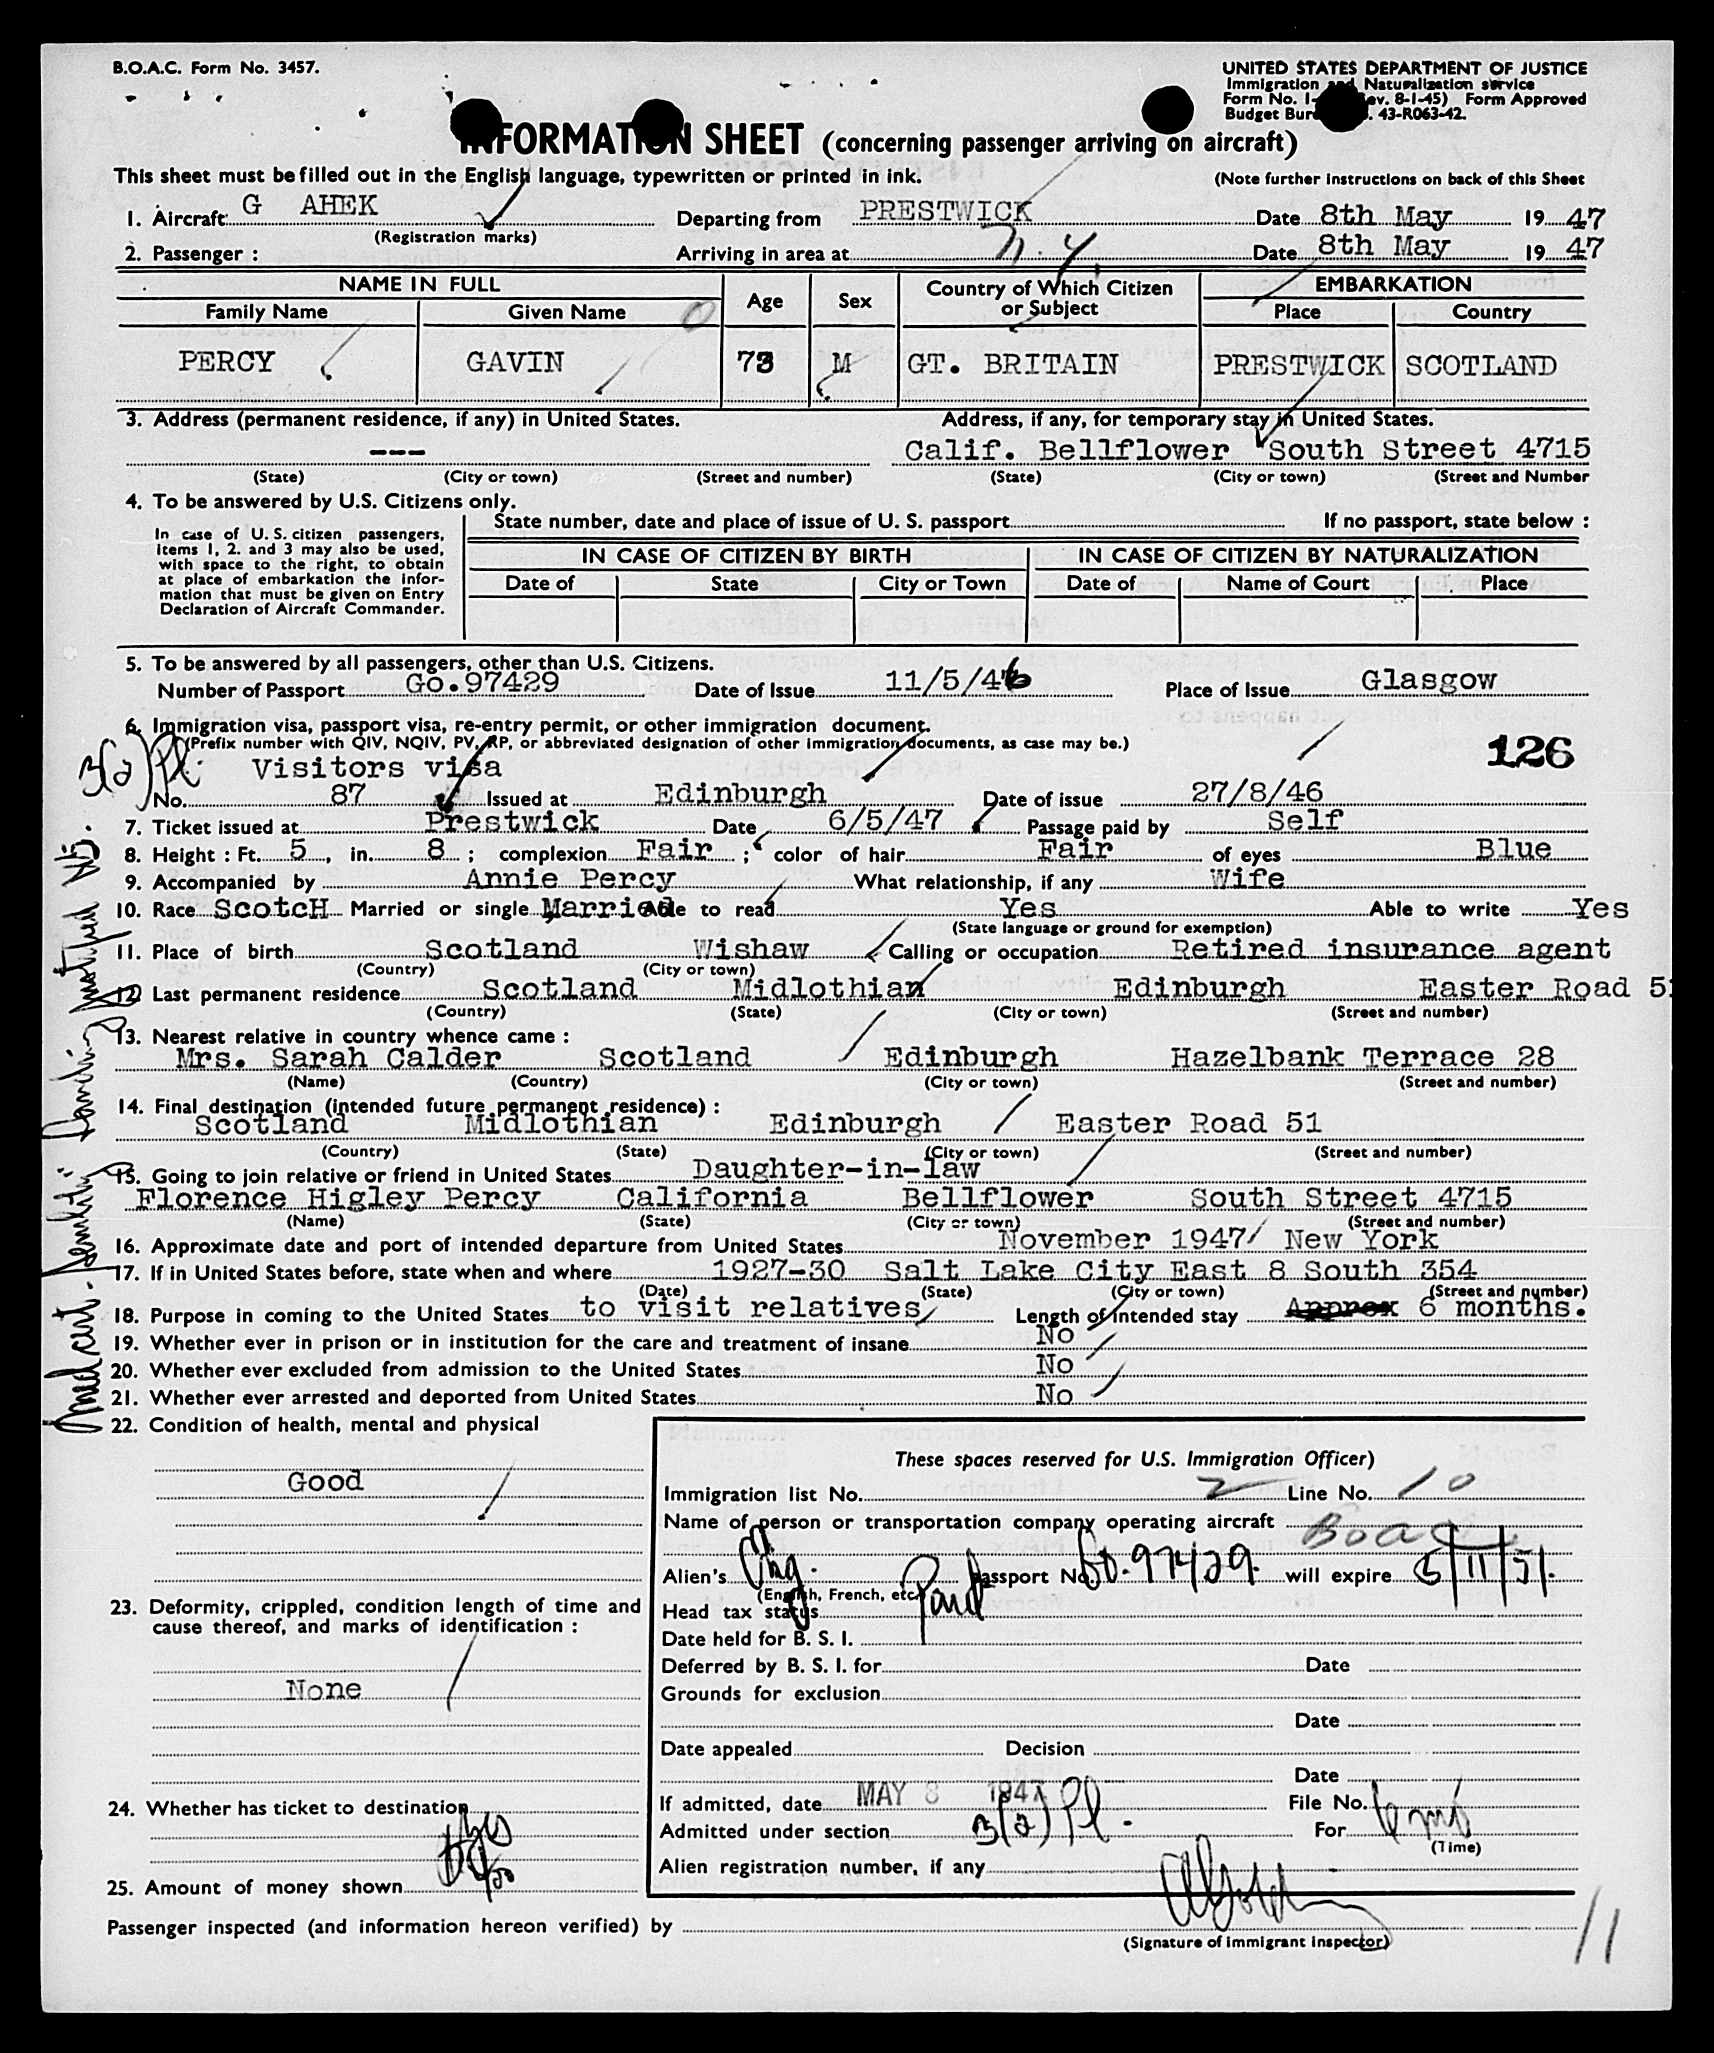 B.O.A.C. Form No. 3457.
UNITED STATES DEPARTMENT OF JUSTICE
Immigration and Naturalization service
Form No. I- ev. 8-1-45) Form Approved
Budget Bur . 43-R063-42.
INFORMATION SHEET (concerning passenger arriving on aircraft)
This sheet must be filled out in the English language, typewritten or printed in ink.
(Note further instructions on back of this Sheet
1. Aircraft G AHEK Departing from PRESTWICK Date 8th May 19 47
(Registration marks)
2. Passenger : Arriving in area at N.Y. Date 8th May 19 47
NAME IN FULL Age Sex Country of Which Citizen or Subject EMBARKATION
Family Name Given Name Place Country
PERCY GAVIN 73 M GT. BRITAIN PRESTWICK SCOTLAND
3. Address (permanent residence, if any) in United States. Address, if any, for temporary stay in United States.
--- Calif. Bellflower South Street 4715
(State) (City or town) (Street and number) (State) (City or town) (Street and Number
4. To be answered by U.S. Citizens only.
In case of U.S. citizen passengers, items 1, 2. and 3 may also be used, with space to the right, to obtain at place of embarkation the infor-mation that must be given on Entry Declaration of Aircraft Commander.
State number, date and place of issue of U. S. passport If no passport, state below :
IN CASE OF CITIZEN BY BIRTH IN CASE OF CITIZEN BY NATURALIZATION
Date of State City or Town Date of Name of Court Place
5. To be answered by all passengers, other than U.S. Citizens.
Number of Passport GO.97429 Date of Issue 11/5/46 Place of Issue Glasgow
6. Immigration visa, passport visa, re-entry permit, or other immigration document.
(Prefix number with QIV, NQIV, PV, RP, or abbreviated designation of other immigration documents, as case may be.)
3(2) Pl. Visitors visa 126
No. 87 Issued at Edinburgh Date of issue 27/8/46
7. Ticket issued at Prestwick Date 6/5/47 Passage paid by Self
8. Height : Ft. 5 , in. 8 ; complexion Fair ; color of hair Fair of eyes Blue
9. Accompanied by Annie Percy What relationship, if any Wife
10. Race ScotcH Married or single Married Able to read Yes Able to write Yes
(State language or ground for exemption)
11. Place of birth Scotland Wishaw Calling or occupation Retired insurance agent
(Country) (City or town)
12. Last permanent residence Scotland Midlothian Edinburgh Easter Road 51
(Country) (State) (City or town) (Street and number)
13. Nearest relative in country whence came :
Mrs. Sarah Calder Scotland Edinburgh Hazelbank Terrace 28
(Name) (Country) (City or town) (Street and number)
14. Final destination (intended future permanent residence) :
Scotland Midlothian Edinburgh Easter Road 51
(Country) (State) (City or town) (Street and number)
15. Going to join relative or friend in United States Daughter-in-law
Florence Higley Percy California Bellflower South Street 4715
(Name) (State) (City or town) (Street and number)
16. Approximate date and port of intended departure from United States November 1947 New York
17. If in United States before, state when and where 1927-30 Salt Lake City East 8 South 354
(Date) (State) (City or town) (Street and number)
18. Purpose in coming to the United States to visit relatives Length of intended stay Approx 6 months.
19. Whether ever in prison or in institution for the care and treatment of insane No
20. Whether ever excluded from admission to the United States No
21. Whether ever arrested and deported from United States No
Med cert. "Senility" Landing
22. Condition of health, mental and physical
Good
23. Deformity, crippled, condition length of time and
cause thereof, and marks of identification :
None
24. Whether has ticket to destination yes
25. Amount of money shown
These spaces reserved for U.S. Immigration Officer)
Immigration list No. 2 Line No. 10
Name of person or transportation company operating aircraft BOAC
Alien's Passport No. Go. 97429. will expire 5/11/51.
(English, French, etc.)
Head tax status Paid
Date held for B. S. I.
Deferred by B. S. I. for Date
Grounds for exclusion
Date
Date appealed Decision
Date
If admitted, date MAY 8 1947 File No.
Admitted under section 3(2) Pl. For 6 mos
(Time)
Alien registration number, if any
Passenger inspected (and information hereon verified) by
(Signature of immigrant inspector)
11